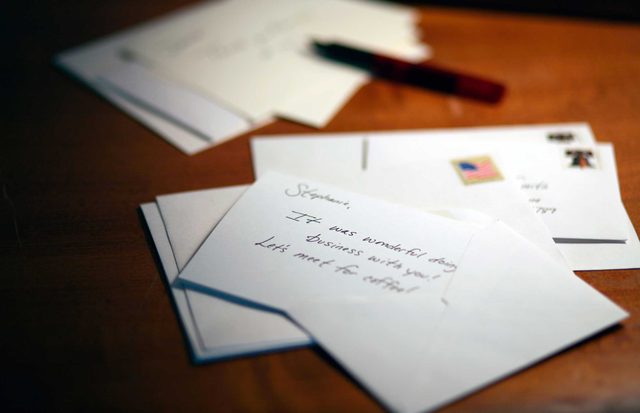 Stephanie,
It was wonderful doing
business with you!
Let's meet for coffee!